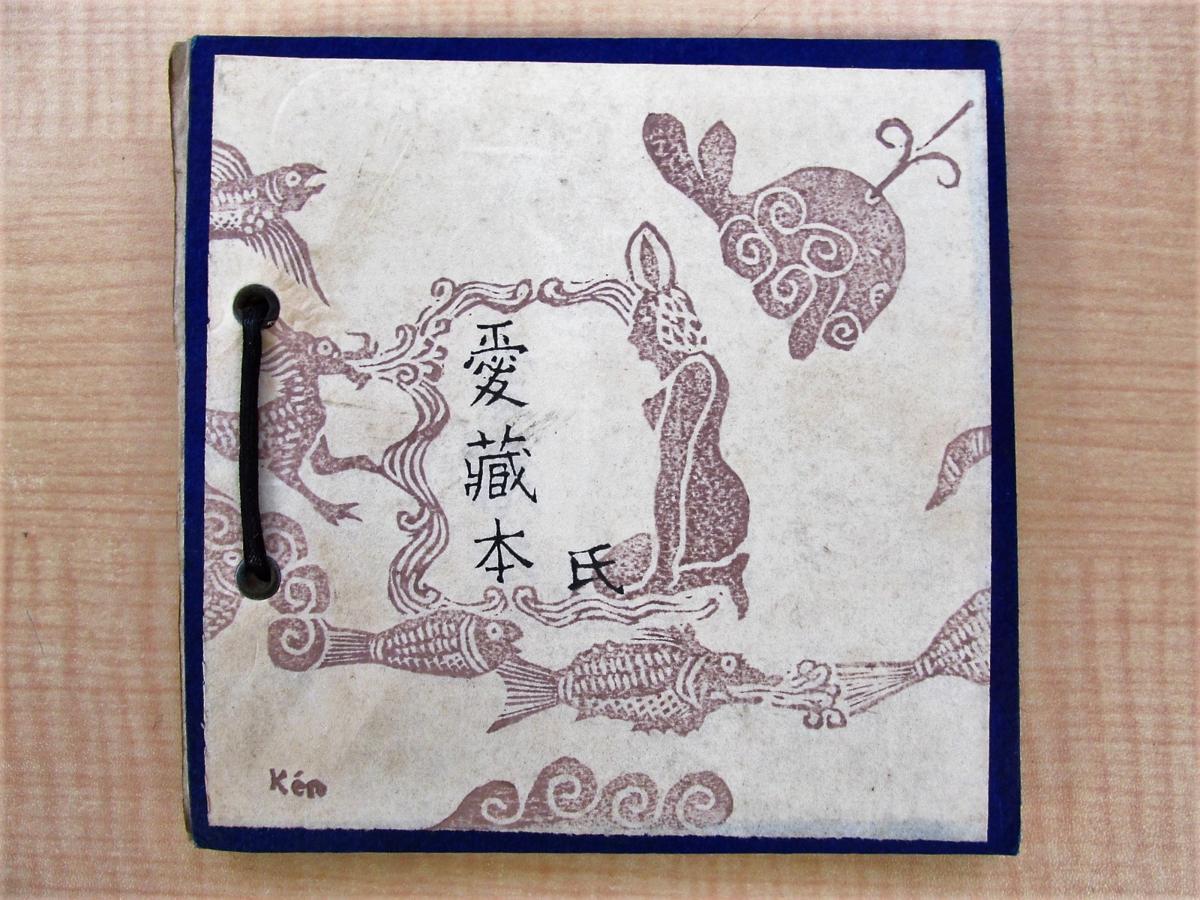 愛藏本
氏
Kén